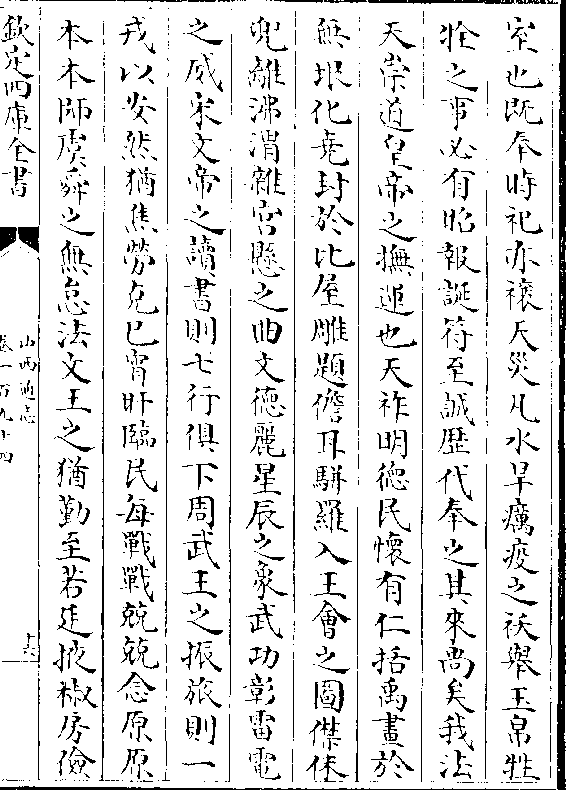 室也既奉時祀亦禳天災凡水旱癘疫之祅舉玉帛牲
牷之事必有昭報誕符至誠歴代奉之其來尚矣我法
天崇道皇帝之撫運也天祚明德民懷有仁括禹畫於
無垠化堯封於比屋雕題儋耳駢羅入王會之圖傑休
兜離沸渭雜宮懸之曲文德麗星辰之象武功彰雷電
之威宋文帝之讀書則七行俱下周武王之振旅則一
戎以安然猶焦勞克已宵旰臨民每戰戰兢兢念原原
本本師虞舜之無怠法文王之猶勤至若廷掖椒房儉
欽定四庫全書
山西通志
卷一百九十四
十六